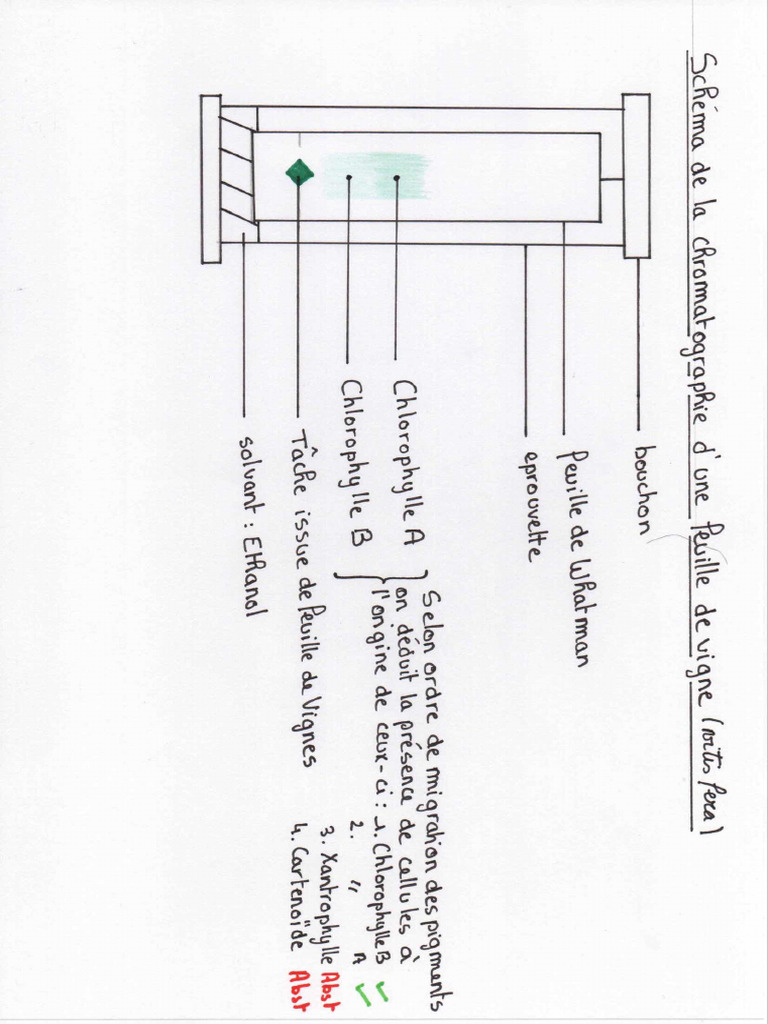 Schéma de la chromatographie d'une feuille de vigne (vitis fera)
bouchon
feuille de Whatman
eprouvette
Chlorophylle A
Chlorophylle B
Selon ordre de migration des pigments
on déduit la présence de cellules à
l'origine de ceux-ci : 1. Chlorophylle B ✓
2. " A ✓
3. Xantrophylle Abst
4. Cartenoïde Abst
Tâche issue de feuille de Vignes
solvant : Ethanol